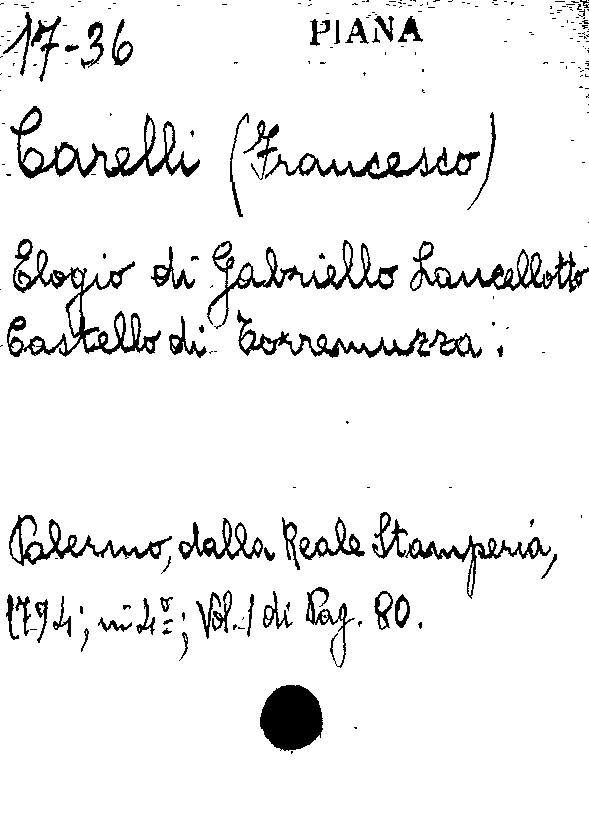 17-36 PIANA
Carelli (Francesco)
Elogio di Gabriello Lancellotto
Castello di Torremuzza.
Palermo, dalla Reale Stamperia,
1794; in 4º; Vol. 1 di Pag. 80.